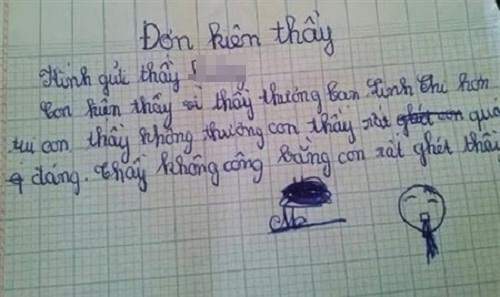 Đơn kiên thầy
Kính gửi thầy
Con kiện thầy vì thầy thương bạn Linh Chi hơn
con thầy không thương con thầy rất ghét con quá
đáng. Thầy không công bằng con rất ghét thầy